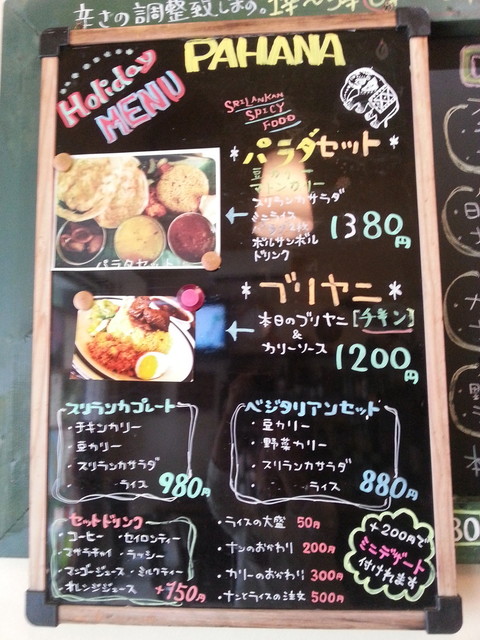 辛さの調整致します。
PAHANA
Holiday
MENU
SRILANKAN
SPICY
FOOD
*パラタセット*
豆カリー
マトンカリー
スリランカサラダ
ミニライス
パラタ2枚
ポルサンボル
ドリンク
1380円
パラタセット
*ブリヤニ*
本日のブリヤニ[チキン]
&
カリーソース
1200円
スリランカプレート
・チキンカリー
・豆カリー
・スリランカサラダ
・ライス
980円
ベジタリアンセット
・豆カリー
・野菜カリー
・スリランカサラダ
・ライス
880円
セットドリンク
・コーヒー ・セイロンティー
・マサラチャイ ・ラッシー
・マンゴージュース ・ミルクティー
・オレンジジュース +150円
・ライスの大盛 50円
・ナンのおかわり 200円
・カリーのおかわり 300円
・ナンとライスの注文 500円
+200円で
ミニデザート
付けれます